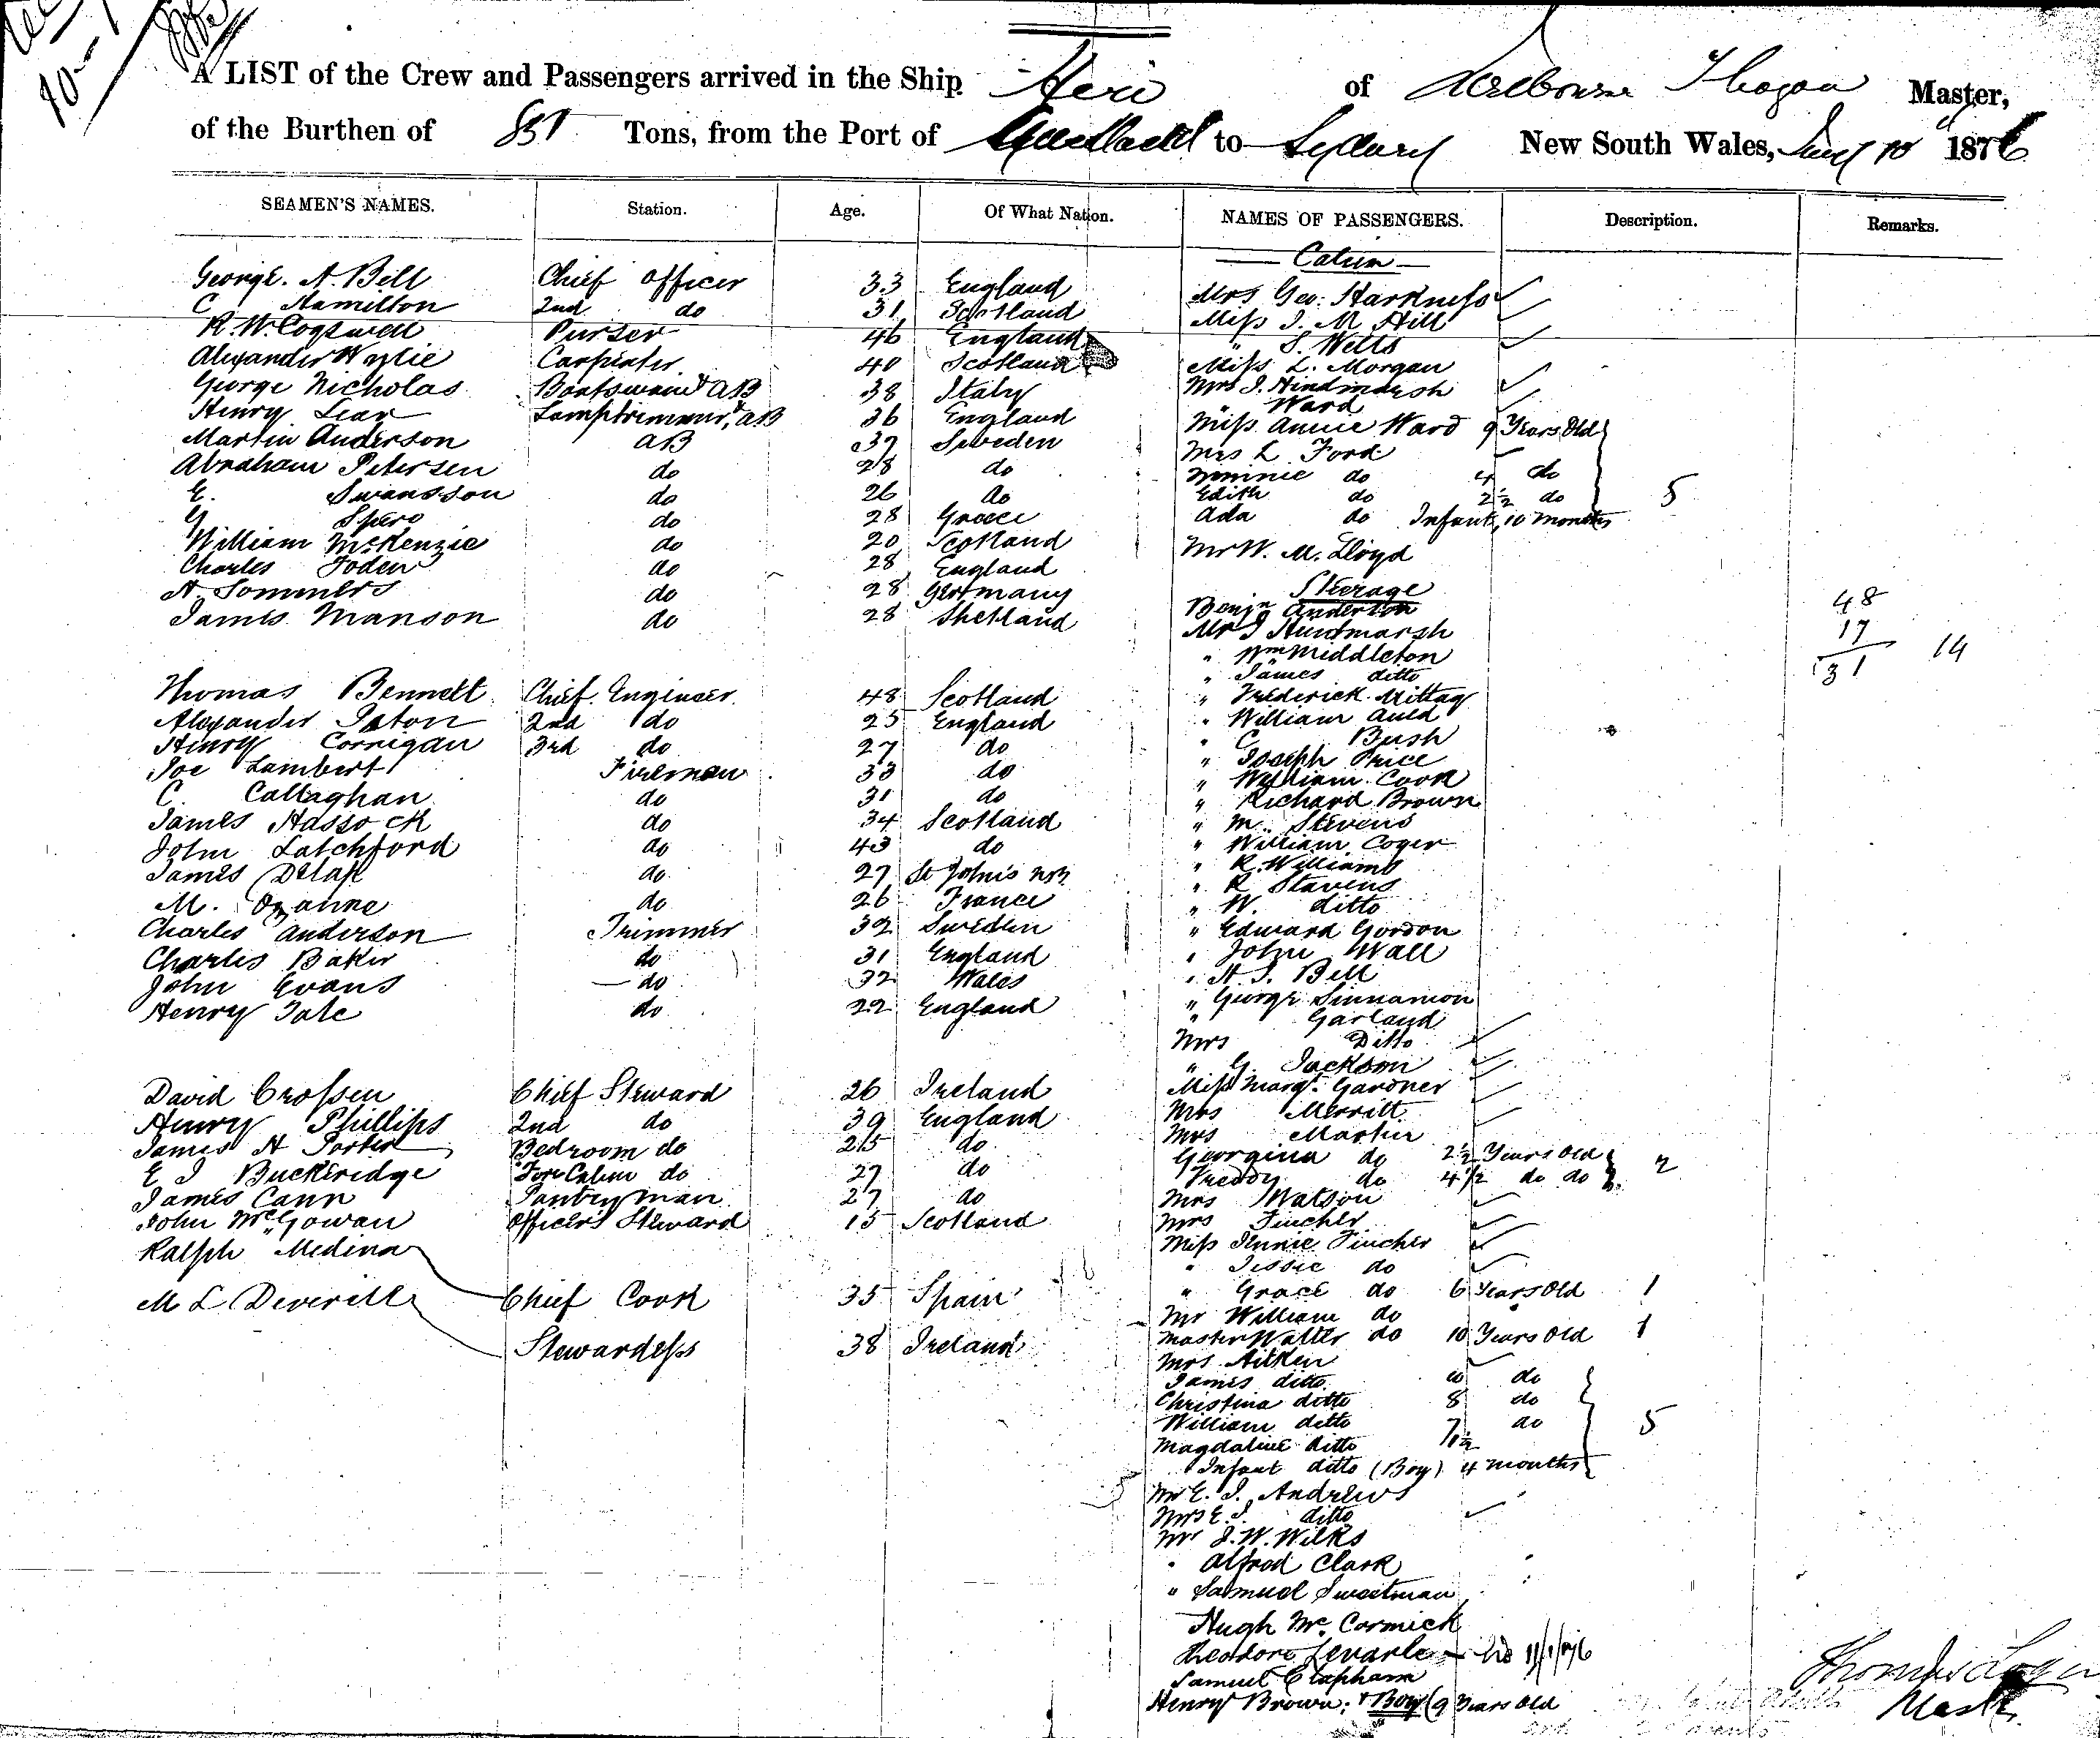 A LIST of the Crew and Passengers arrived in the Ship Hero of Melbourne T Logan Master,
of the Burthen of Tons, from the Port of Auckland to Sydney New South Wales, Jany 10 1876
SEAMEN'S NAMES. Station. Age. Of What Nation. NAMES OF PASSENGERS. Description. Remarks.
Cabin
George. A. Bell Chief Officer 33 England
C Hamilton 2nd do 31 Scotland
R. W. Cogswell Purser 46 England
Alexander Wylie Carpenter 40 Scotland
George Nicholas Boatswain & AB 38 Italy
Henry Lear Lamptrimmer & AB 36 England
Martin Anderson AB 37 Sweden
Abraham Petersen do 28 do
E. Swansson do 26 do
G Spero do 28 Greece
William McKenzie do 20 Scotland
Charles Foden do 28 England
A Sommers do 28 Germany
James Manson do 28 Shetland
Thomas Bennett Chief Engineer 48 Scotland
Alexander Paton 2nd do 25 England
Henry Corrigan 3rd do 27 do
Joe Lambert Fireman 33 do
C. Callaghan do 31 do
James Hassock do 34 Scotland
John Latchford do 43 do
James Delap do 27 St John's
M. Ozanne do 26 France
Charles Anderson Trimmer 32 Sweden
Charles Baker do 31 England
John Evans do 32 Wales
Henry Tate do 22 England
David Crossen Chief Steward 26 Ireland
Henry Phillips 2nd do 39 England
James H Porter Bedroom do 25 do
E J Buckeridge Fore Cabin do 27 do
James Cann Pantryman 27 do
John McGowan Officers Steward 15 Scotland
Ralph Medina Chief Cook 35 Spain
M L Deverill Stewardess 38 Ireland
Mrs Geo: Harkness
Miss J. M Hill
" S. Wells
Miss L. Morgan
Mrs J. Hindmarsh
" Ward
Miss Annie Ward 9 Years Old
Mrs L Ford
Minnie do 4 do
Edith do 2½ do 5
Ada do Infant, 10 months
Mr W. M. Lloyd
Steerage
Benjn Anderson
Mr J Hindmarsh
" Wm Middleton
" James ditto
" Frederick Mittag
" William Auld
" C Bush
" Joseph Price
" William Cook
" Richard Brown
" M. Stevens
" William Coger
" R. Williams
" R Stavens
" W. ditto
" Edward Gordon
" John Wall
" H. J. Bell
" George Sinnamon
" Garland
Mrs Ditto
" G. Jackson
Miss Margt. Gardner
Mrs Merritt
Mrs Martin
Georgina do 2½ Years Old
Freddy do 4½ do do 2
Mrs Watson
Mrs Fincher
Miss Jennie Fincher
" Jessie do
" Grace do 6 Years Old 1
Mr William do
Master Walter do 10 Years Old 1
Mrs Aitken
James ditto 10 do
Christina ditto 8 do
William ditto 7 do 5
Magdaline ditto 1½
Infant ditto (Boy) 4 months
Mr E. J. Andrews
Mrs E. J. ditto
Mr J. W. Wilks
" Alfred Clark
" Samuel Sweetman
Hugh McCormick
Theodore 11/1/76
Samuel Clapham
Henry Brown; & Boy (9 Years Old
48
17
31 14
Thomas Logan
Master